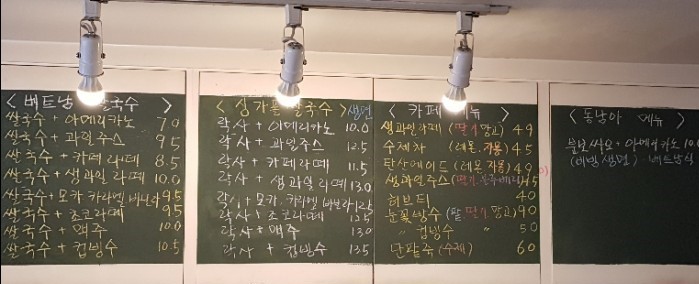 < 베트남 쌀국수 >
쌀국수 + 아메리카노 7.0
쌀국수 + 과일주스 9.5
쌀국수 + 카페라떼 8.5
쌀국수 + 생과일라떼 10.0
쌀국수 + 모카 카라멜 바닐라 9.5
쌀국수 + 초코라떼 9.5
쌀국수 + 맥주 10.0
쌀국수 + 컵빙수 10.5
< 싱가폴 쌀국수 > 생면
락사 + 아메리카노 10.0
락사 + 과일주스 12.5
락사 + 카페라떼 11.5
락사 + 생과일라떼 13.0
락사 + 모카 카라멜 바닐라 12.5
락사 + 초코라떼 12.5
락사 + 맥주 13.0
락사 + 컵빙수 13.5
< 카페 메뉴 >
생과일라떼 (딸기, 망고) 4.9
수제차 (레몬, 자몽) 4.5
탄산에이드 (레몬, 자몽) 4.9
생과일주스 (딸기, 4.5
허브티 4.0
눈꽃빙수 (팥, 딸기, 망고) 9.0
〃 컵빙수 〃 5.0
단팥죽 (수제) 6.0
< 동남아 메뉴 >
아메리카노 10.0
(비빔 생면) - 베트남식